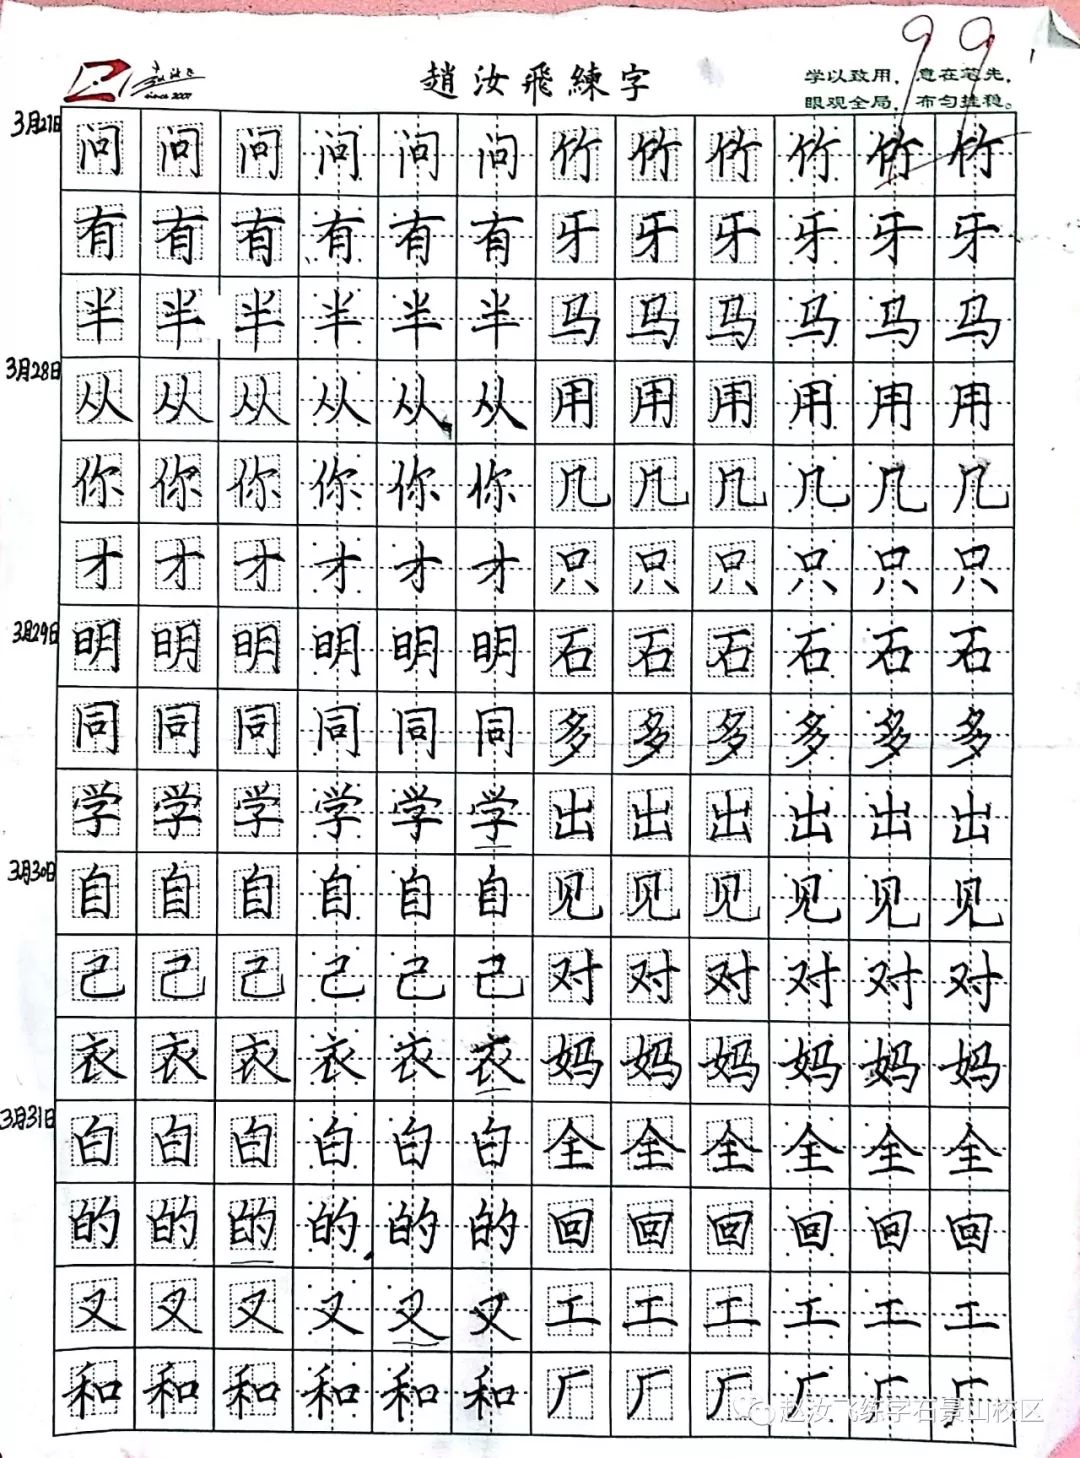 since 2007
趙汝飛練字
99
学以致用，意在笔先，
眼观全局，布匀挂稳。
3月27日
问问问问问问竹竹竹竹竹竹
有有有有有有牙牙牙牙牙牙
半半半半半半马马马马马马
3月28日
从从从从从从用用用用用用
你你你你你你几几几几几几
才才才才才才只只只只只只
3月29日
明明明明明明石石石石石石
同同同同同同多多多多多多
学学学学学学出出出出出出
3月30日
自自自自自自见见见见见见
己己己己己己对对对对对对
衣衣衣衣衣衣妈妈妈妈妈妈
3月31日
白白白白白白全全全全全全
的的的的的的回回回回回回
又又又又又又工工工工工工
和和和和和和厂厂厂厂厂厂
赵汝飞练字石景山校区